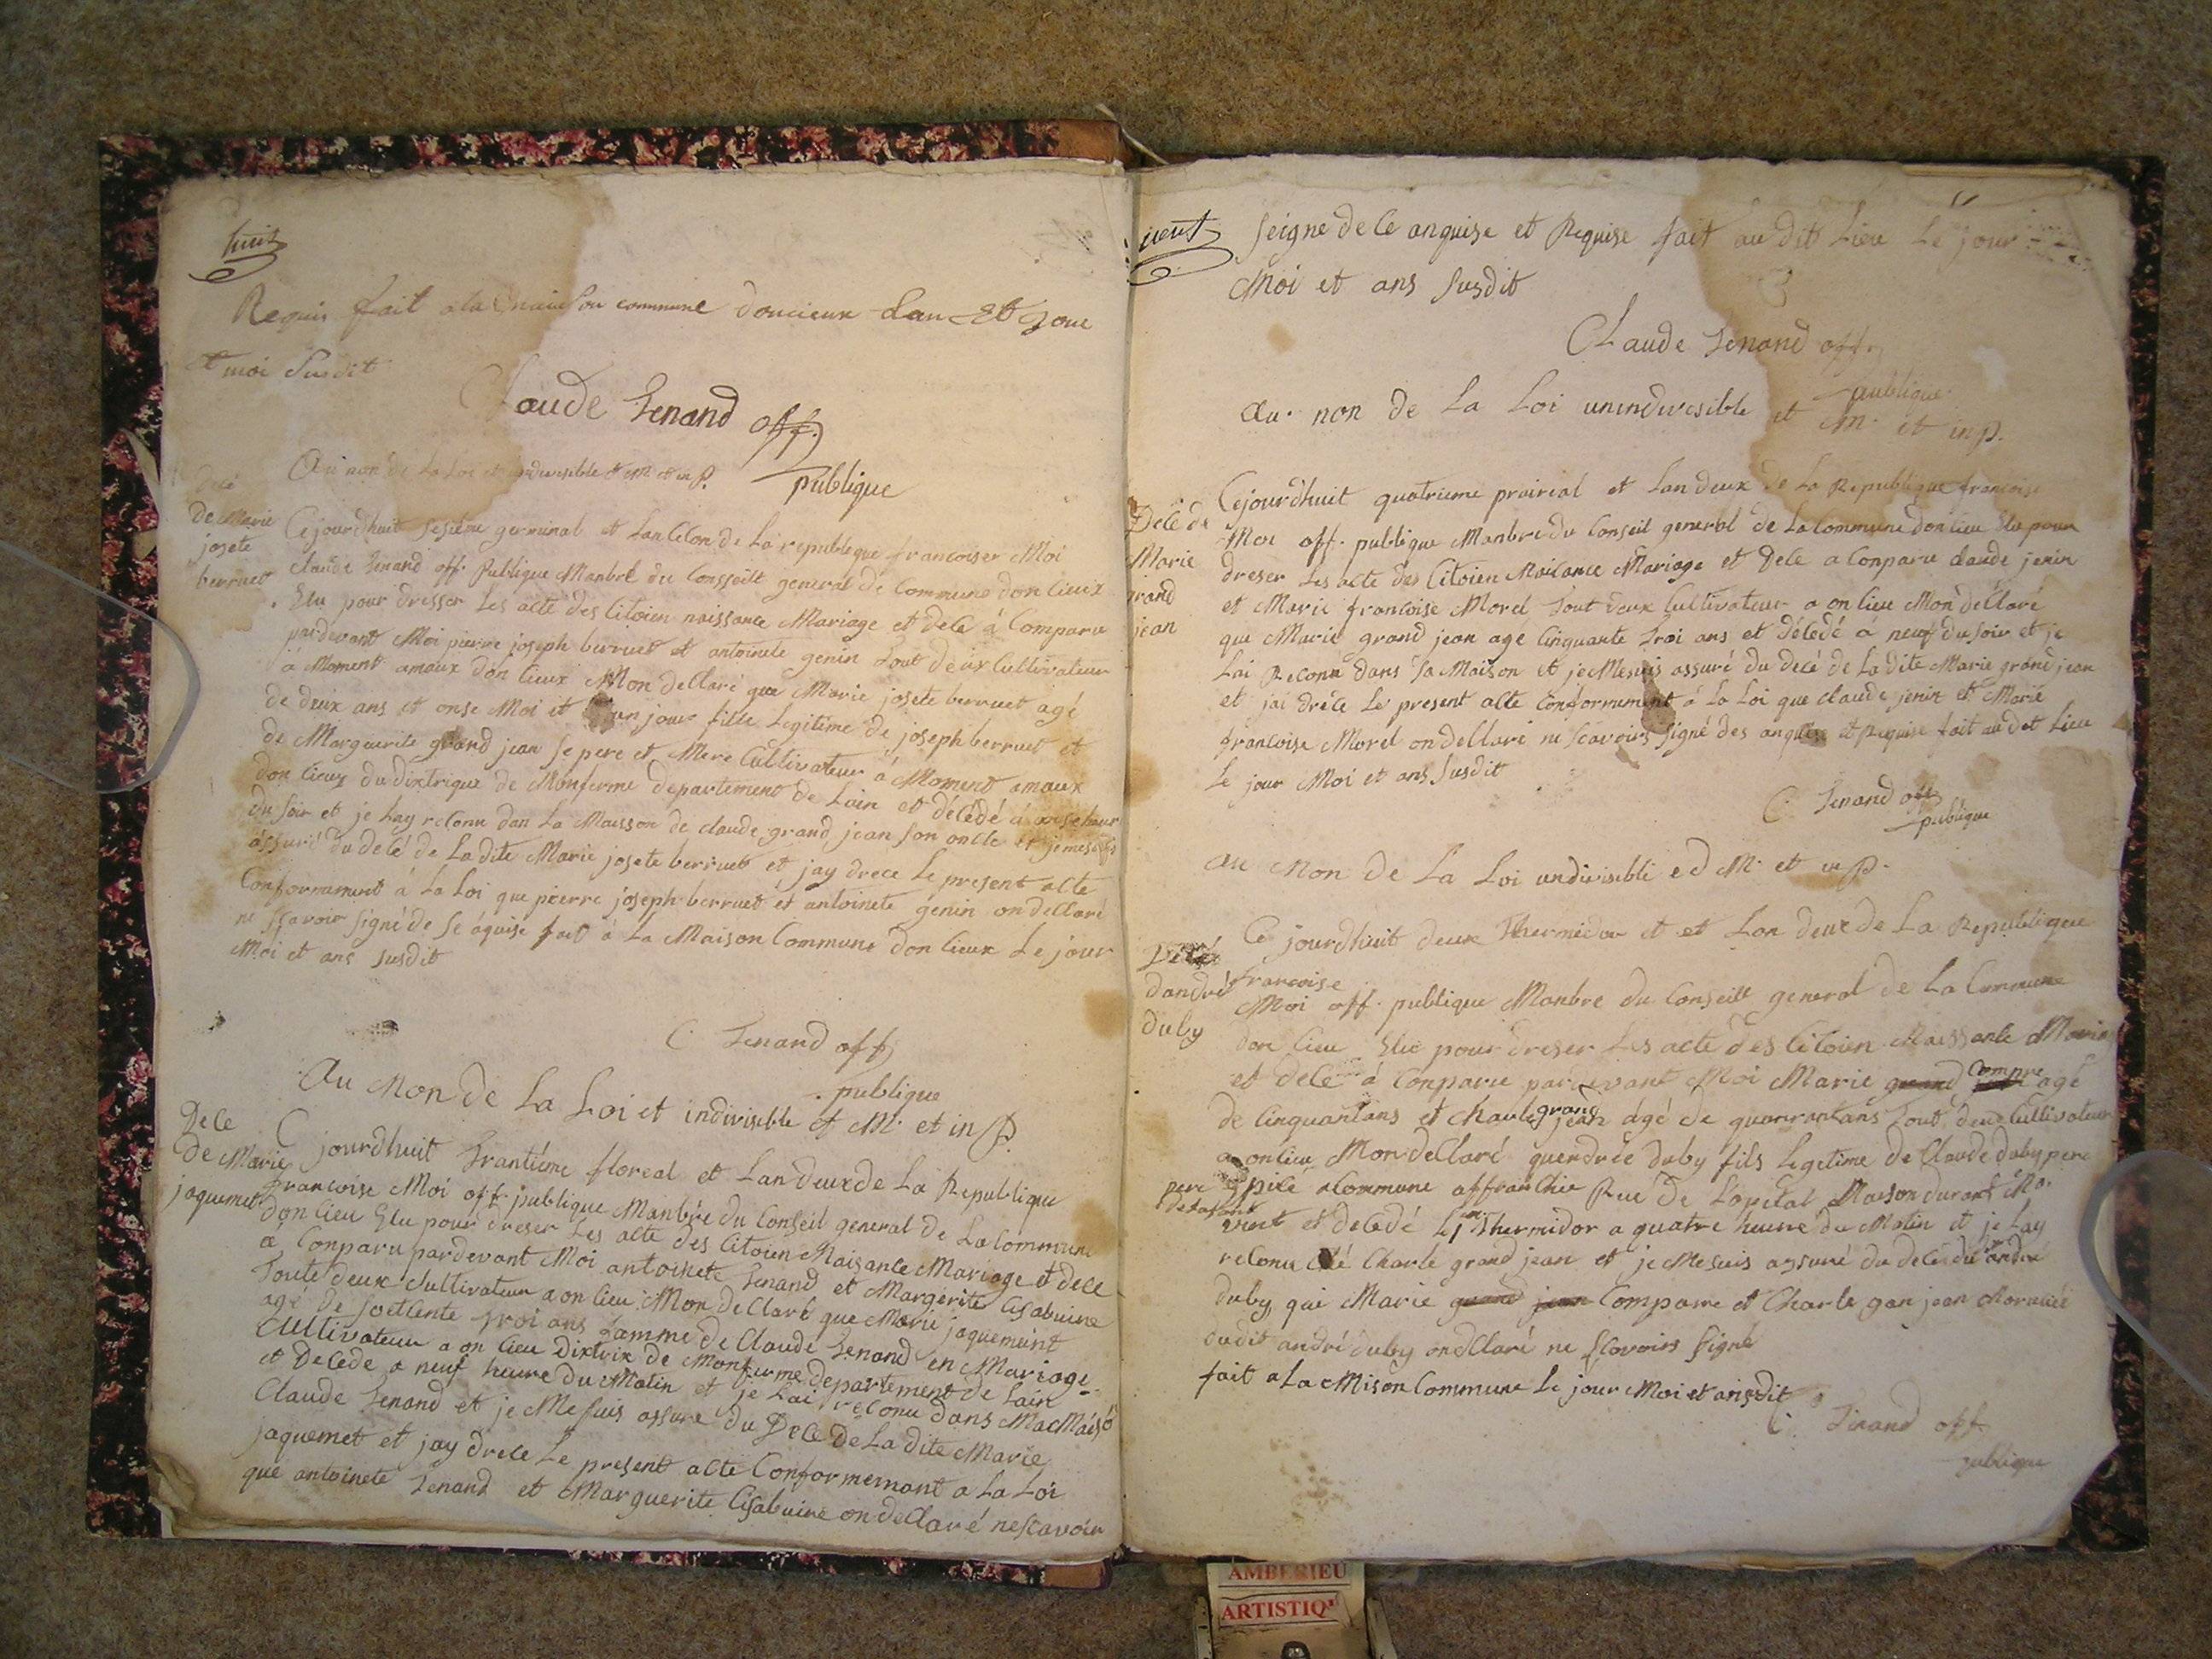 huit
Requis fait a la maison commune doncieux Lan Et Jour
et moi Susdit
Claude Senand off.
publique
Au non de La Loi et indivisible et M. et in P.
Decé
De Marie
josete
berruet
Cejourdhuit sesiéme germinal et Lan Celon de La republeque francoiser Moi
Claude Senand off. Publique Manbre du Consseill general de Commune don Cieux
Elu pour dresser Les acté des Citoien naissance Mariage et decé á Comparu
pardevant Moi pierre joseph berruet et antoinete genin tout déux Cultivateur
á Moment amaux don Cieux Mon dellaré que Marie josete berruet agé
de deux ans et onse Moi et un jour fille Legitime de joseph berruet et
de Marguerite grand jean se pere et Mere Cultivateur á Moment amaux
don Cieux du dixtrique de Monferme departement de Lain et décédé á onse heur
du soir et je Lay reconu dan La Maisson de Claude grand jean son oncle et je mesuis
ássuré du decé de Ladite Marie josete berruet et jay drece Le present acte
Conformament á La Loi que pierre joseph berruet et antoinete genin on dellaré
ne sçavoir signé de se áquise fait á La Maison Commune don Cieux Le jour
Moi et ans susdit
C Senand off
publique
Au Mon de La Loi et indivisible et M. et in P.
Dece
De Marie
jaquemet
C jourdhuit Trantiéme floreal et Lan deux de La Republique
francoise Moi off. publique Manbre du Conseil general de La Commune
don Cieu Elu pour dreser Les acte des Citoien Naisance Mariage et dece
a Conparu pardevant Moi antoinete Senand et Margerite Cisabuine
Toute deux Cultivateur a on Cieu Mon dellaré que Marie jaquemeint
agé de soetlente troi ans famme de Claude Senand en Mariage
Cultivateur a on Cieu Dixtrix de Monferme departement de Lain
et Decede a neuf heure du Matin et je Lai reconu dans Mac Maiso
Claude Senand et je Me suis assure du Dece de La dite Marie
jaquemet et jay drece Le present acte Conformemant a La Loi
que antoinete Senand et Marguerite Cisabuine on dellaré ne scavoir
neuf
seigne de ce anquise et Requise fait au dit Lieu Le jour
Moi et ans susdit
Claude Senand off.
publique
Au. non de La Loi unindivisible et M. et in p.
Décé de
Marie
grand
jean
Cejourdhuit quatrieme prairial et Lan deux de La Republique francoise
Moi off. publique Manbre du Conseil general de La Commune don Cieu Elu pour
dreser Les acte des Citoien Naicance Mariage et Dece a Conparu Claude jenin
et Marie francoise Morel tout deux Cultivateur a on Cieu Mon dellaré
que Marie grand jean age Cinquante troi ans et décédé á neuf du soir et je
Lai Reconu dans sa Maison et je Mesuis assuré du decé de La dite Marie grand jean
et jai dréce Le present acte Conformment á La Loi que Claude jenin et Marie
francoise Morel on dellaré ne scavoirs signé des anquise et Requise fait au det Lieu
Le jour Moi et ans susdit
C. Senand off
publique
Au Mon de La Loi undivisible ed M. et in P.
Décé
dandré
duby
Ce jourdhuit deux Thermidor et et Lan deux de La Republique
francoise
Moi off. publique Manbre du Conseill general de La Commune
don Cieu Elu pour dreser Les acte des Citoien Naissance Maria
et décé á Conparu pardevant Moi Marie grand Compare agé
de Cinquantans et Charle grand jean agé de quarantans tout deux Cultivateur
a on Cieu Mon dellaré quendrée duby fils Legetime de Claude duby pere
pere a Commune affranchie Rue de Lopital Maison durant Na.
vint et decedé Le 1er Thermidor a quatre heure du Matin et je Lay
reconu Charle grand jean et je Mesuis assuré du décés du andré
duby que Marie grand jean Compare et Charle gan jean
dudit andré duby ondllaré ne scavoirs signé
fait a La Mison Commune Le jour Moi et ansdit
C. Senand off.
publique
AMBERIEU
ARTISTIQ'